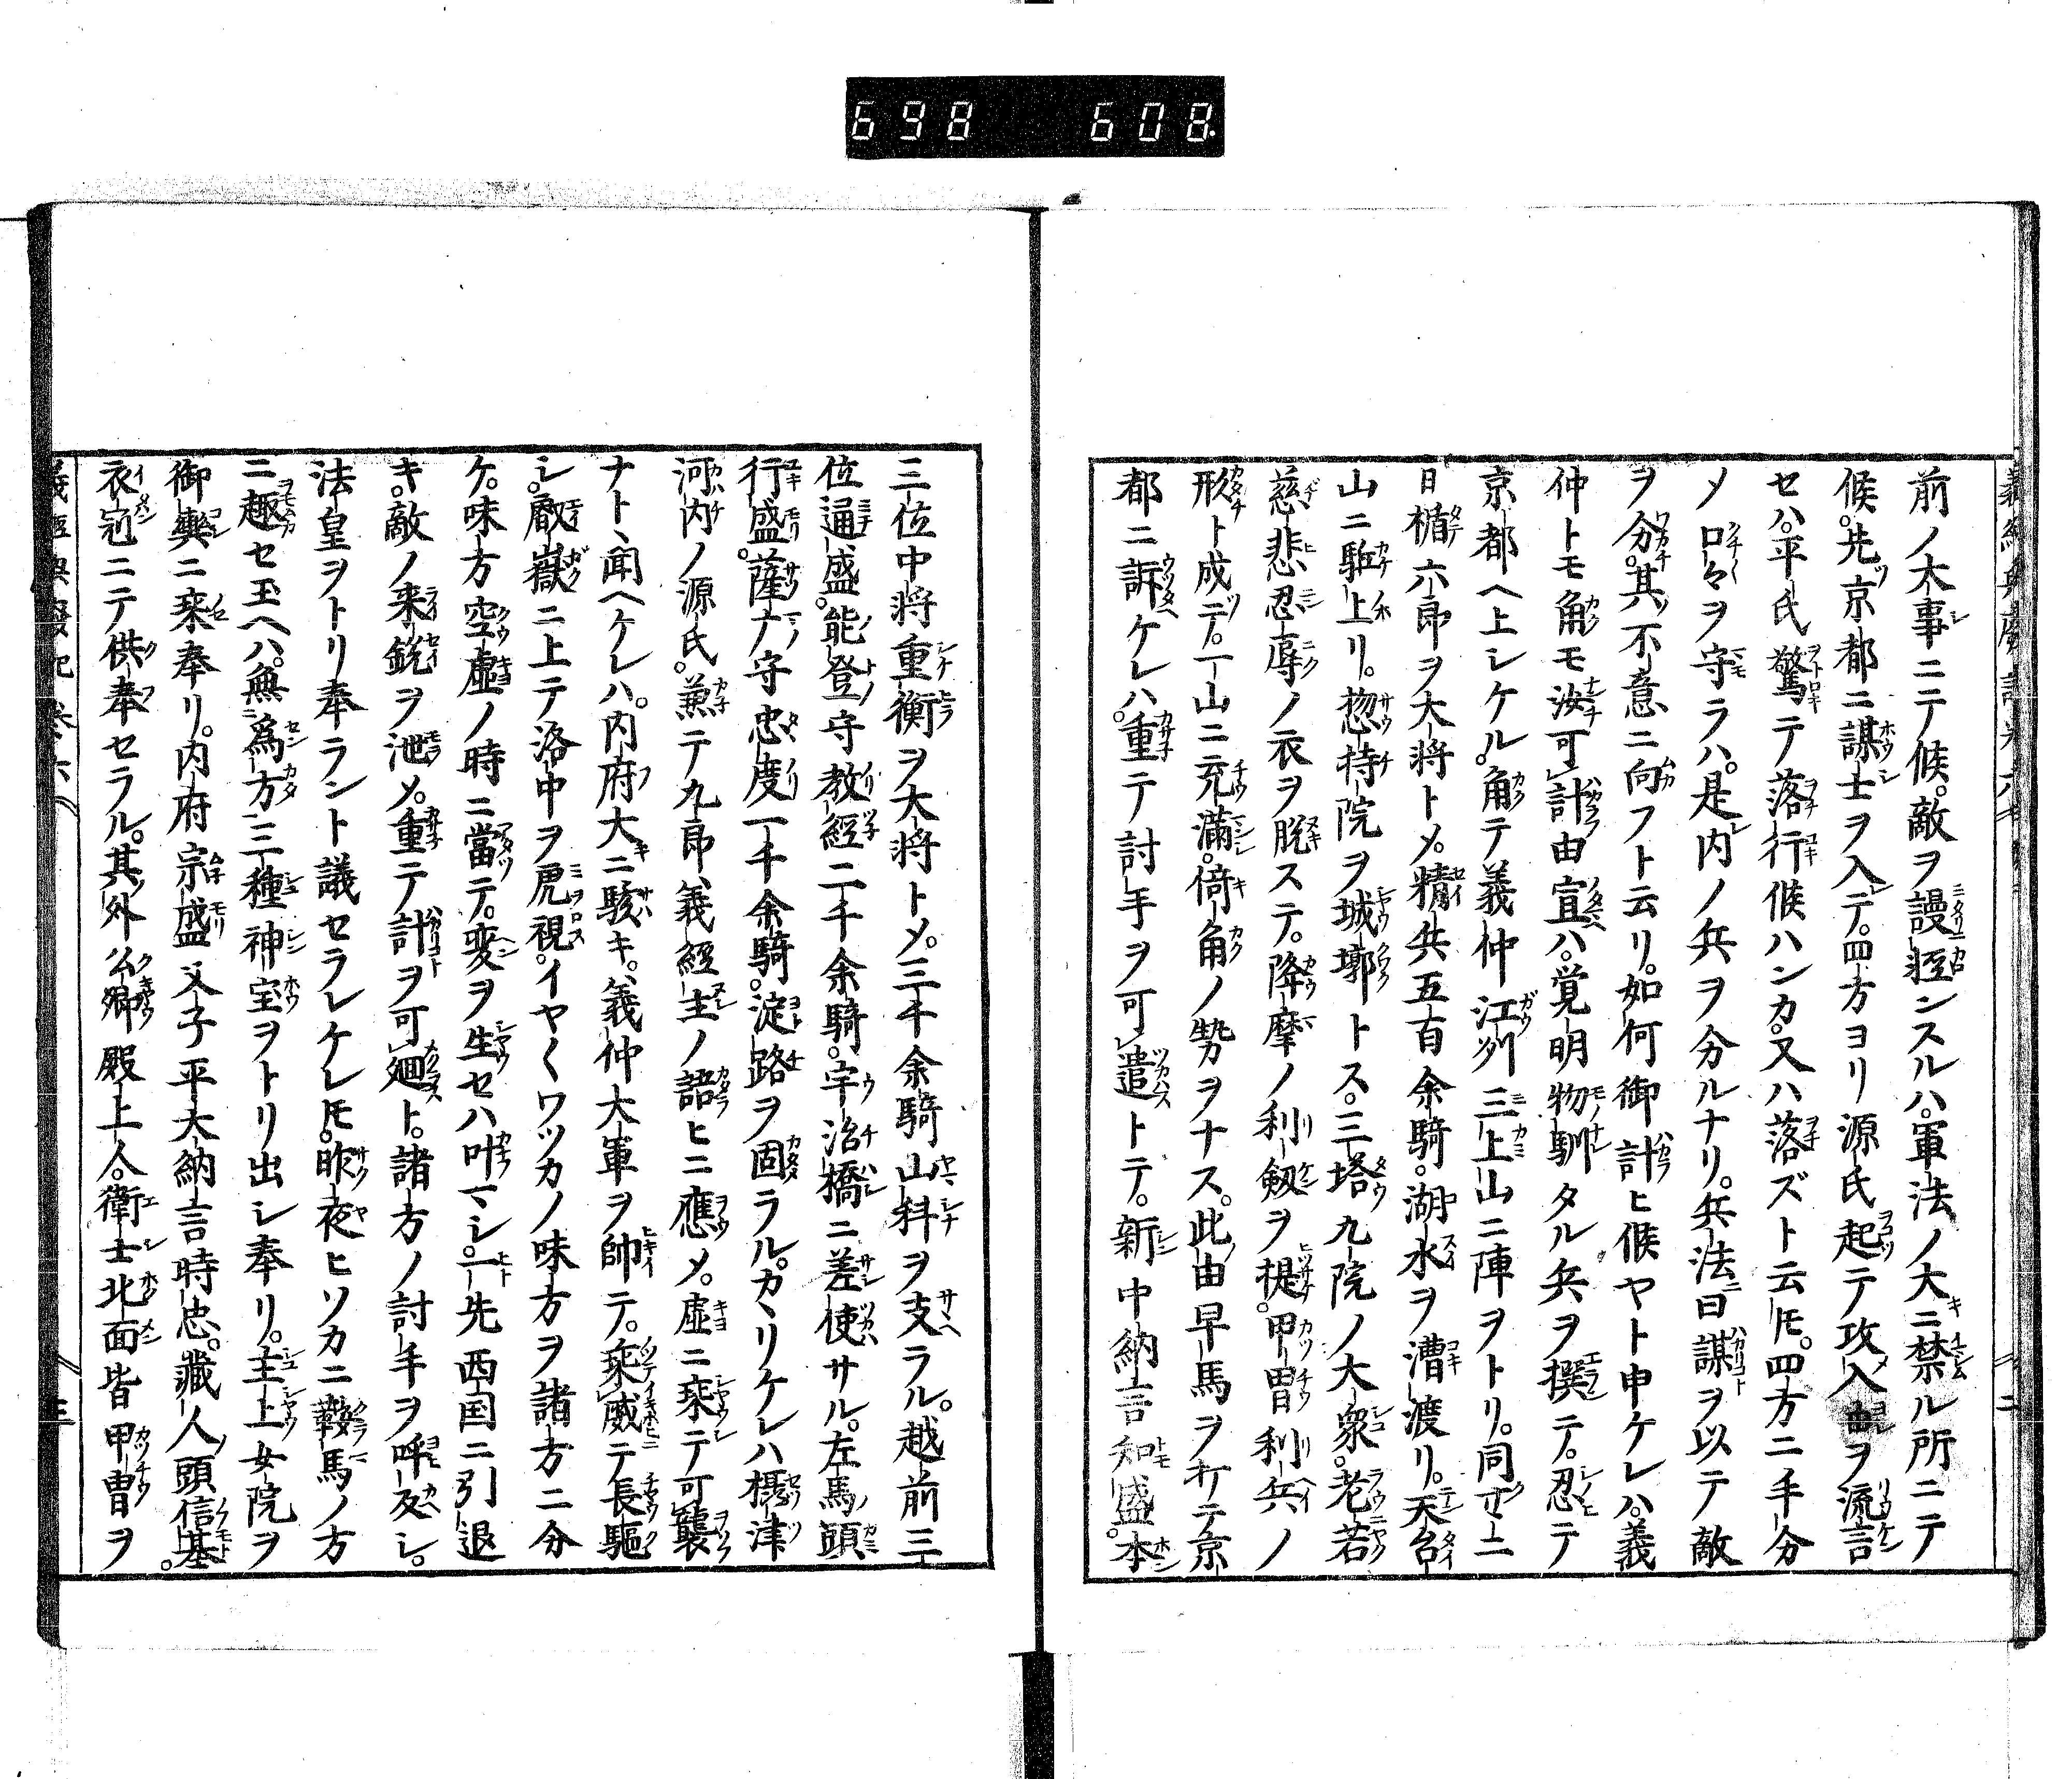 698 608
前ノ大事ニテ候。敵ヲ謾輕ンスルハ。軍法ノ大ニ禁ル所ニテ
候。先京都ニ謀士ヲ入テ。四方ヨリ源氏起テ攻入由ヲ流言
セハ。平氏驚テ落行候ハンカ。又ハ落ズト云𪜈。四方ニ手分
ノ口々ヲ守ラハ。是内ノ兵ヲ分ルナリ。兵法曰謀ヲ以テ敵
ヲ分。其不意ニ向フト云リ。如何御計ヒ候ヤト申ケレハ。義
仲トモ角モ汝可計由宣ハ。覚明物馴タル兵ヲ撰テ。忍テ
京都ヘ上シケル。角テ義仲江州三上山ニ陣ヲトリ。同廿二
日楯六郎ヲ大将トメ。精兵五百余騎。湖水ヲ漕渡リ。天台
山ニ駈上リ。惣持院ヲ城墎トス。三塔九院ノ大衆。老若
慈悲忍辱ノ衣ヲ脱ステ。降摩ノ利剱ヲ提。甲冑利兵ノ
形ト成テ。一山ニ充滿。倚角ノ勢ヲナス。此由早馬ヲ打テ京
都ニ訴ケレハ。重テ討手ヲ可遣トテ。新中納言知盛。本
三位中将重衡ヲ大将トメ。三千余騎山科ヲ支ラル。越前三
位通盛。能登守教經二千余騎。宇治橋ニ差使サル。左馬頭
行盛。薩广守忠度一千余騎。淀路ヲ固ラル。カヽリケレハ摂津
河内ノ源氏。兼テ九郎義經主ノ語ヒニ應メ。虚ニ乗テ可襲
ナトヽ聞ヘケレハ。内府大ニ駭キ。義仲大軍ヲ帥テ。乗威テ長驅
シ。叡嶽ニ上テ洛中ヲ虎視。イヤ〱ワツカノ味方ヲ諸方ニ分
ケ。味方空虚ノ時ニ當テ。変ヲ生セハ叶マシ。一先西国ニ引退
キ。敵ノ来鋭ヲ池メ。重テ計ヲ可廻ト。諸方ノ討手ヲ呼反シ。
法皇ヲトリ奉ラント議セラレケレ𪜈。昨夜ヒソカニ鞍馬ノ方
ニ趣セ玉ヘハ。無為方三種神宝ヲトリ出シ奉リ。主上女院ヲ
御輿ニ乗奉リ。内府宗盛父子平大納言時忠。藏人頭信基。
衣冠ニテ供奉セラル。其外公卿殿上人。衛士北面皆甲冑ヲ